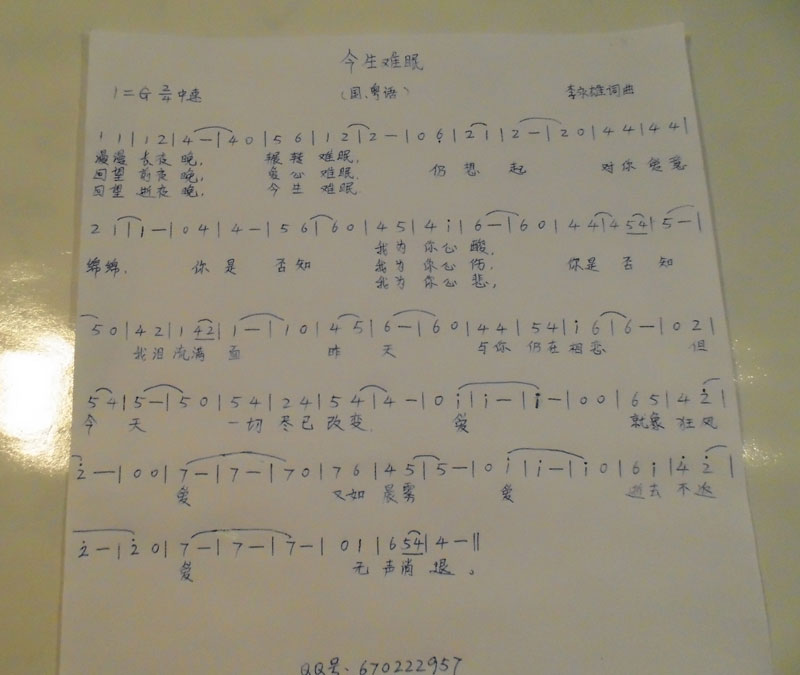 今生难眠
1=G 2/4 中速 (国、粤语) 李永雄词曲
1 1 | 1 2 | 4 — | 4 0 | 5 6 | 1 2 | 2 — | 0 6̣ | 2 1 | 2 — | 2 0 | 4 4 | 4 4 |
漫漫 长夜 晚, 辗转 难眠,
回望 前夜 晚, 爱心 难眠. 仍 想 起 对你 爱意
回望 逝夜 晚, 今生 难眠.
2 1 | 1 — | 0 4 | 4 — | 5 6 | 6 0 | 4 5 | 4 i | 6 — | 6 0 | 4 4 | 4 54 | 5 — |
我为 你心 酸,
绵绵. 你 是 否知 我为 你心 伤, 你是 否 知
我为 你心 悲,
5 0 | 4 2 | 1 42 | 1 — | 1 0 | 4 5 | 6 — | 6 0 | 4 4 | 5 4 | i 6 | 6 — | 0 2 |
我泪 流满 面 昨 天 与你 仍在 相恋 但
5 4 | 5 — | 5 0 | 5 4 | 2 4 | 5 4 | 4 — | 0 i | i — | i — | 0 0 | 6 5 | 4 2̇ |
今 天 一切 尽已 改变. 爱 就象 狂风
2̇ — | 0 0 | 7 — | 7 — | 7 0 | 7 6 | 4 5 | 5 — | 0 i | i — | i 0 | 6 i | 4̇ 2̇ |
爱 又如 晨雾 爱 逝去 不返
2̇ — | 2̇ 0 | 7 — | 7 — | 7 — | 0 1 | 6 54 | 4 — ‖
爱 无 声消 退。
QQ号、670222957